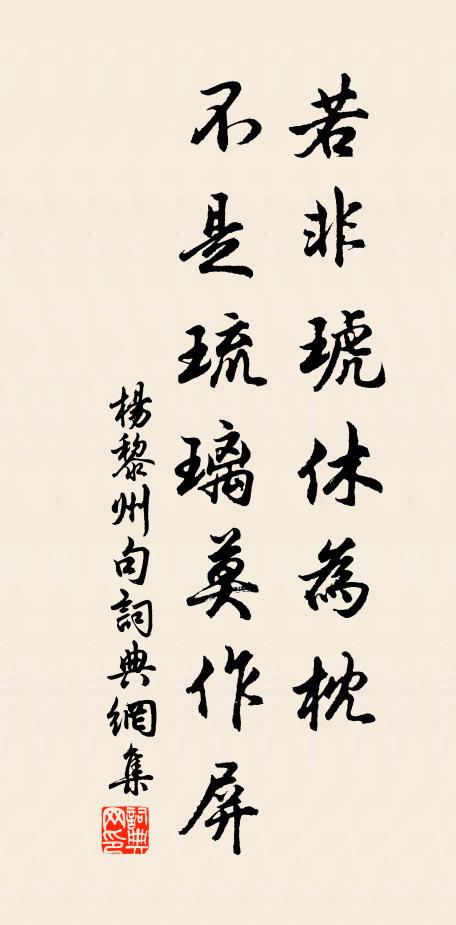 若非琥休為枕
不是琉璃莫作屏
楊黎州句詞典網集
詞典網印